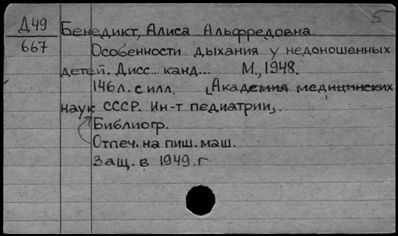 5
Д49 Бенедикт, Алиса Альфредовна.
667 Особенности дыхания у недоношенных
детей. Дисс... канд... М., 1948.
146 л. с илл. (Академия медицинских
наук СССР. Ин-т педиатрии).
Библиогр.
Отпеч. на пиш. маш.
Защ. в 1949 г